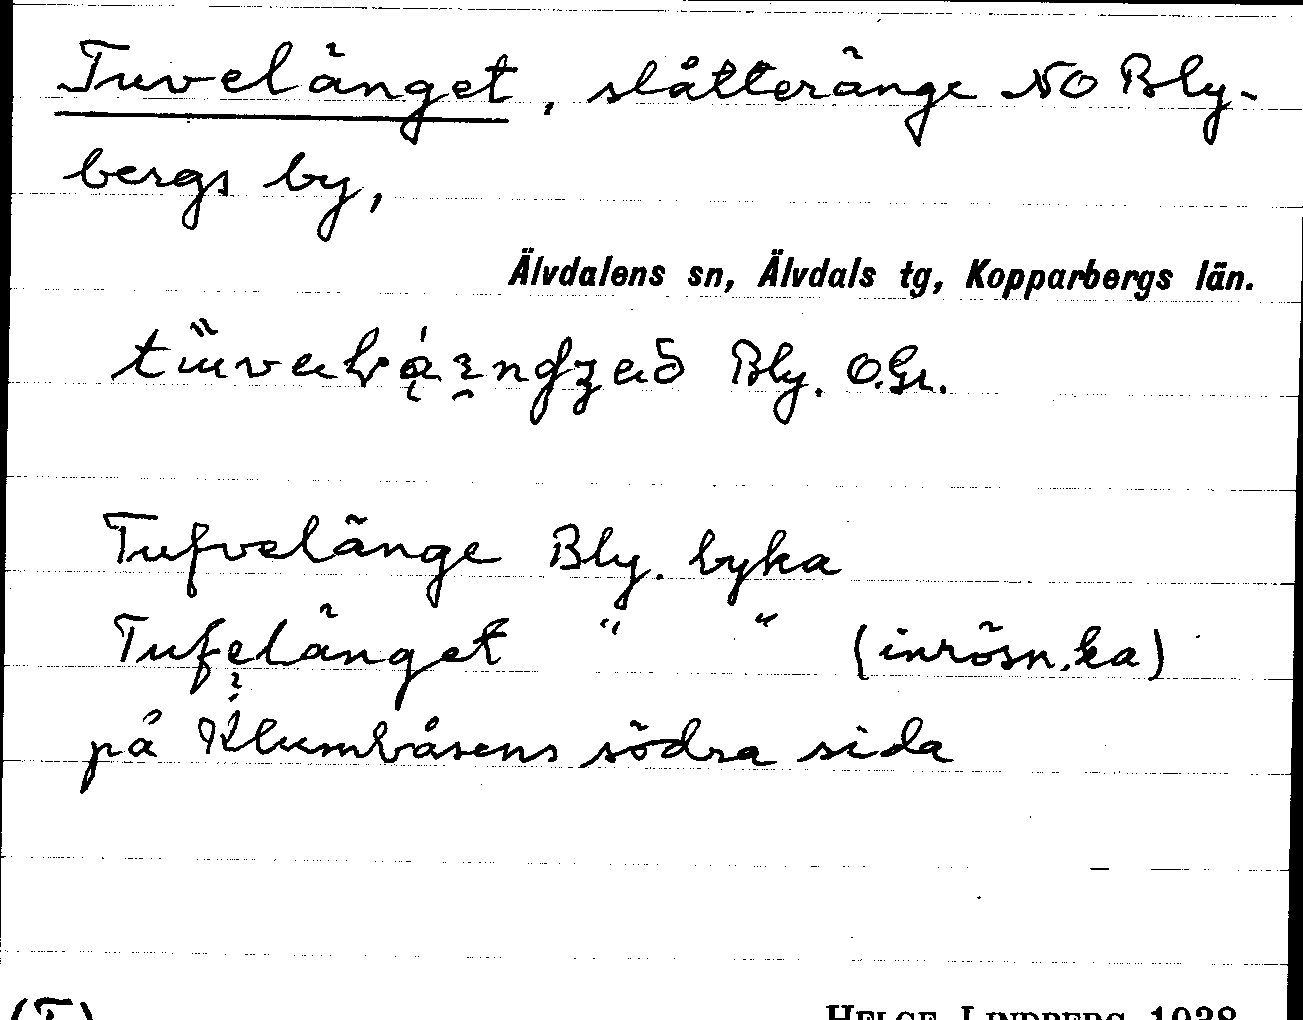 Tuvelänget, slåtteränge NO Bly-
bergs by,
Älvdalens sn, Älvdals tg, Kopparbergs län.
Bly. O.Gr.
Tufvelänge Bly. byka
Tufelänget " " (inrösn.ka)
på Klumbåsens södra sida
(T)
HELGE LINDBERG 1938